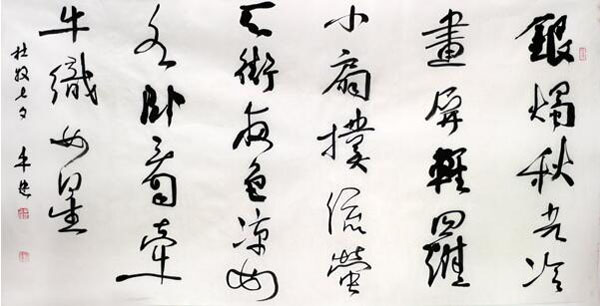 銀燭秋光冷
畫屏輕羅
小扇撲流螢
天街夜色涼如
水卧看牽
牛織女星
杜牧七夕